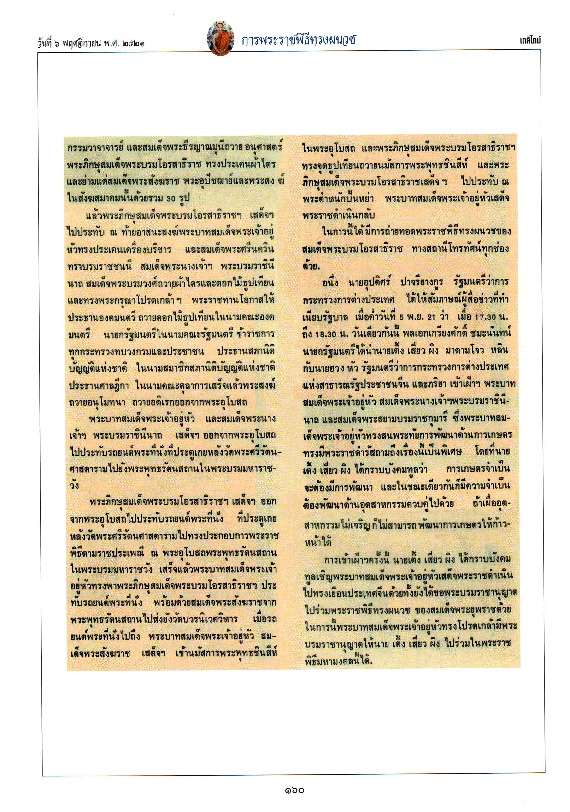 วันที่ ๖ พฤศจิกายน พ.ศ. ๒๕๒๑
การพระราชพิธีทรงผนวช
เดลินิวส์
กรรมวาจาจารย์ และสมเด็จพระธีรญาณมุนีถวาย อนุศาสตร์
พระภิกษุสมเด็จพระบรมโอรสาธิราช ทรงประเคนผ้าไตร
และย่ามแด่สมเด็จพระสังฆราช พระอุปัชฌาย์และพระสงฆ์
ในสังฆสมาคมนั้นด้วยรวม 30 รูป
แล้วพระภิกษุสมเด็จพระบรมโอรสาธิราชฯ เสด็จฯ
ไปประทับ ณ ท้ายอาสนะสงฆ์พระบาทสมเด็จพระเจ้าอยู่
หัวทรงประเคนเครื่องบริขาร และสมเด็จพระศรีนครินทราบรมราชชนนี สมเด็จพระนางเจ้าฯ พระบรมราชินี
นาถ สมเด็จพระบรมวงศ์ถวายผ้าไตรและดอกไม้ธูปเทียน
และทรงพระกรุณาโปรดเกล้าฯ พระราชทานโอกาสให้
ประธานองคมนตรี ถวายดอกไม้ธูปเทียนในนามคณะองค
มนตรี นายกรัฐมนตรีในนามคณะรัฐมนตรี ข้าราชการ
ทุกกระทรวงทบวงกรมและประชาชน ประธานสภานิติ
บัญญัติแห่งชาติ ในนามสมาชิกสภานิติบัญญัติแห่งชาติ
ประธานศาลฎีกา ในนามคณะตุลาการเสร็จแล้วพระสงฆ์
ถวายอนุโมทนา ถวายอดิเรกออกจากพระอุโบสถ
พระบาทสมเด็จพระเจ้าอยู่หัว และสมเด็จพระนาง
เจ้าฯ พระบรมราชินีนาถ เสด็จฯ ออกจากพระอุโบสถ
ไปประทับรถยนต์พระที่นั่งที่ประตูเกยหลังวัดพระศรีรัตน-
ศาสดารามไปยังพระพุทธรัตนสถานในพระบรมมหาราช-
วัง
พระภิกษุสมเด็จพระบรมโอรสาธิราชฯ เสด็จฯ ออก
จากพระอุโบสถไปประทับรถยนต์พระที่นั่ง ที่ประตูเกย
หลังวัดพระศรีรัตนศาสดารามไปทรงประกอบการพระราช
พิธีตามราชประเพณี ณ พระอุโบสถพระพุทธรัตนสถาน
ในพระบรมมหาราชวัง เสร็จแล้วพระบาทสมเด็จพระเจ้า
อยู่หัวทรงพาพระภิกษุสมเด็จพระบรมโอรสาธิราชฯ ประ
ทับรถยนต์พระที่นั่ง พร้อมด้วยสมเด็จพระสังฆราชจาก
พระพุทธรัตนสถานไปส่งยังวัดบวรนิเวศวิหาร เมื่อรถ
ยนต์พระที่นั่งไปถึง พระบาทสมเด็จพระเจ้าอยู่หัว สม-
เด็จพระสังฆราช เสด็จฯ เข้านมัสการพระพุทธชินสีห์
ในพระอุโบสถ และพระภิกษุสมเด็จพระบรมโอรสาธิราชฯ
ทรงจุดธูปเทียนถวายนมัสการพระพุทธชินสีห์ และพระ
ภิกษุสมเด็จพระบรมโอรสาธิราชเสด็จฯ ไปประทับ ณ
พระตำหนักปั้นหยา พระบาทสมเด็จพระเจ้าอยู่หัวเสด็จ
พระราชดำเนินกลับ
ในการนี้ได้มีการถ่ายทอดพระราชพิธีทรงผนวชของ
สมเด็จพระบรมโอรสาธิราช ทางสถานีโทรทัศน์ทุกช่อง
ด้วย.
อนึ่ง นายอุปดิศร์ ปาจรียางกูร รัฐมนตรีว่าการ
กระทรวงการต่างประเทศ ได้ให้สัมภาษณ์ผู้สื่อข่าวที่ทำ
เนียบรัฐบาล เมื่อค่ำวันที่ 5 พ.ย. 21 ว่า เมื่อ 17.30 น.
ถึง 18.30 น. วันเดียวกันนี้ พลเอกเกรียงศักดิ์ ชมะนันทน์
นายกรัฐมนตรีได้นำนายเติ้ง เสี่ยว ผิง มาดามโจว หลิน
กับนายฮวง หัว รัฐมนตรีว่าการกระทรวงการต่างประเทศ
แห่งสาธารณรัฐประชาชนจีน และภริยา เข้าเฝ้าฯ พระบาท
สมเด็จพระเจ้าอยู่หัว สมเด็จพระนางเจ้าฯพระบรมราชินี-
นาถ และสมเด็จพระสยามบรมราชกุมารี ซึ่งพระบาทสม-
เด็จพระเจ้าอยู่หัวทรงสนพระทัยการพัฒนาด้านการเกษตร
ทรงมีพระราชดำรัสถามถึงเรื่องนี้เป็นพิเศษ โดยที่นาย
เติ้ง เสี่ยว ผิง ได้กราบบังคมทูลว่า การเกษตรจำเป็น
จะต้องมีการพัฒนา และในขณะเดียวกันก็มีความจำเป็น
ต้องพัฒนาด้านอุตสาหกรรมควบคู่ไปด้วย ถ้าเผื่ออุต-
สาหกรรมไม่เจริญก็ไม่สามารถ พัฒนาการเกษตรให้ก้าว-
หน้าได้
การเข้าเฝ้าฯครั้งนี้ นายเติ้ง เสี่ยว ผิง ได้กราบบังคม
ทูลเชิญพระบาทสมเด็จพระเจ้าอยู่หัวเสด็จพระราชดำเนิน
ไปทรงเยือนประเทศจีนด้วยทั้งยังได้ขอพระบรมราชานุญาต
ไปร่วมพระราชพิธีทรงผนวช ของสมเด็จพระยุพราชด้วย
ในการนี้พระบาทสมเด็จพระเจ้าอยู่หัวทรงโปรดเกล้ามีพระ
บรมราชานุญาตให้นาย เติ้ง เสี่ยว ผิง ไปร่วมในพระราช
พิธีมหามงคลนี้ได้.
๑๖๐